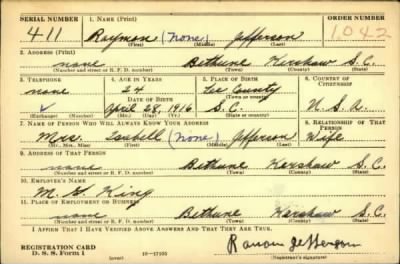 SERIAL NUMBER 1. NAME (Print) ORDER NUMBER
411 Raymon (none) Jefferson 1,042
(First) (Middle) (Last)
2. ADDRESS (Print)
none Bethune Kershaw S.C.
(Number and street or R. F. D. number) (Town) (County) (State)
3. TELEPHONE 4. AGE IN YEARS 5. PLACE OF BIRTH 6. COUNTRY OF CITIZENSHIP
none 24 Lee County
DATE OF BIRTH (Town or county)
✓ April 28, 1916 S.C. U.S.A.
(Exchange) (Number) (Mo.) (Day) (Yr.) (State or country)
7. NAME OF PERSON WHO WILL ALWAYS KNOW YOUR ADDRESS 8. RELATIONSHIP OF THAT PERSON
Mrs. (none) Jefferson Wife
(Mr., Mrs., Miss) (First) (Middle) (Last)
9. ADDRESS OF THAT PERSON
none Bethune Kershaw S.C.
(Number and street or R. F. D. number) (Town) (County) (State)
10. EMPLOYER'S NAME
King
11. PLACE OF EMPLOYMENT OR BUSINESS
none Bethune Kershaw S.C.
(Number and street or R. F. D. number) (Town) (County) (State)
I AFFIRM THAT I HAVE VERIFIED ABOVE ANSWERS AND THAT THEY ARE TRUE.
REGISTRATION CARD
D. S. S. Form 1 (over) 16—17105 Jefferson